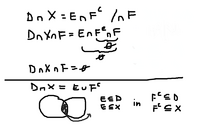 D∩X = E∩Fᶜ /∩F
D∩X∩F = E∩Fᶜ∩F
∅
∅
D∩X∩F = ∅
D∩X = E∪Fᶜ
E⊆D in Fᶜ⊆D
E⊆X Fᶜ⊆X